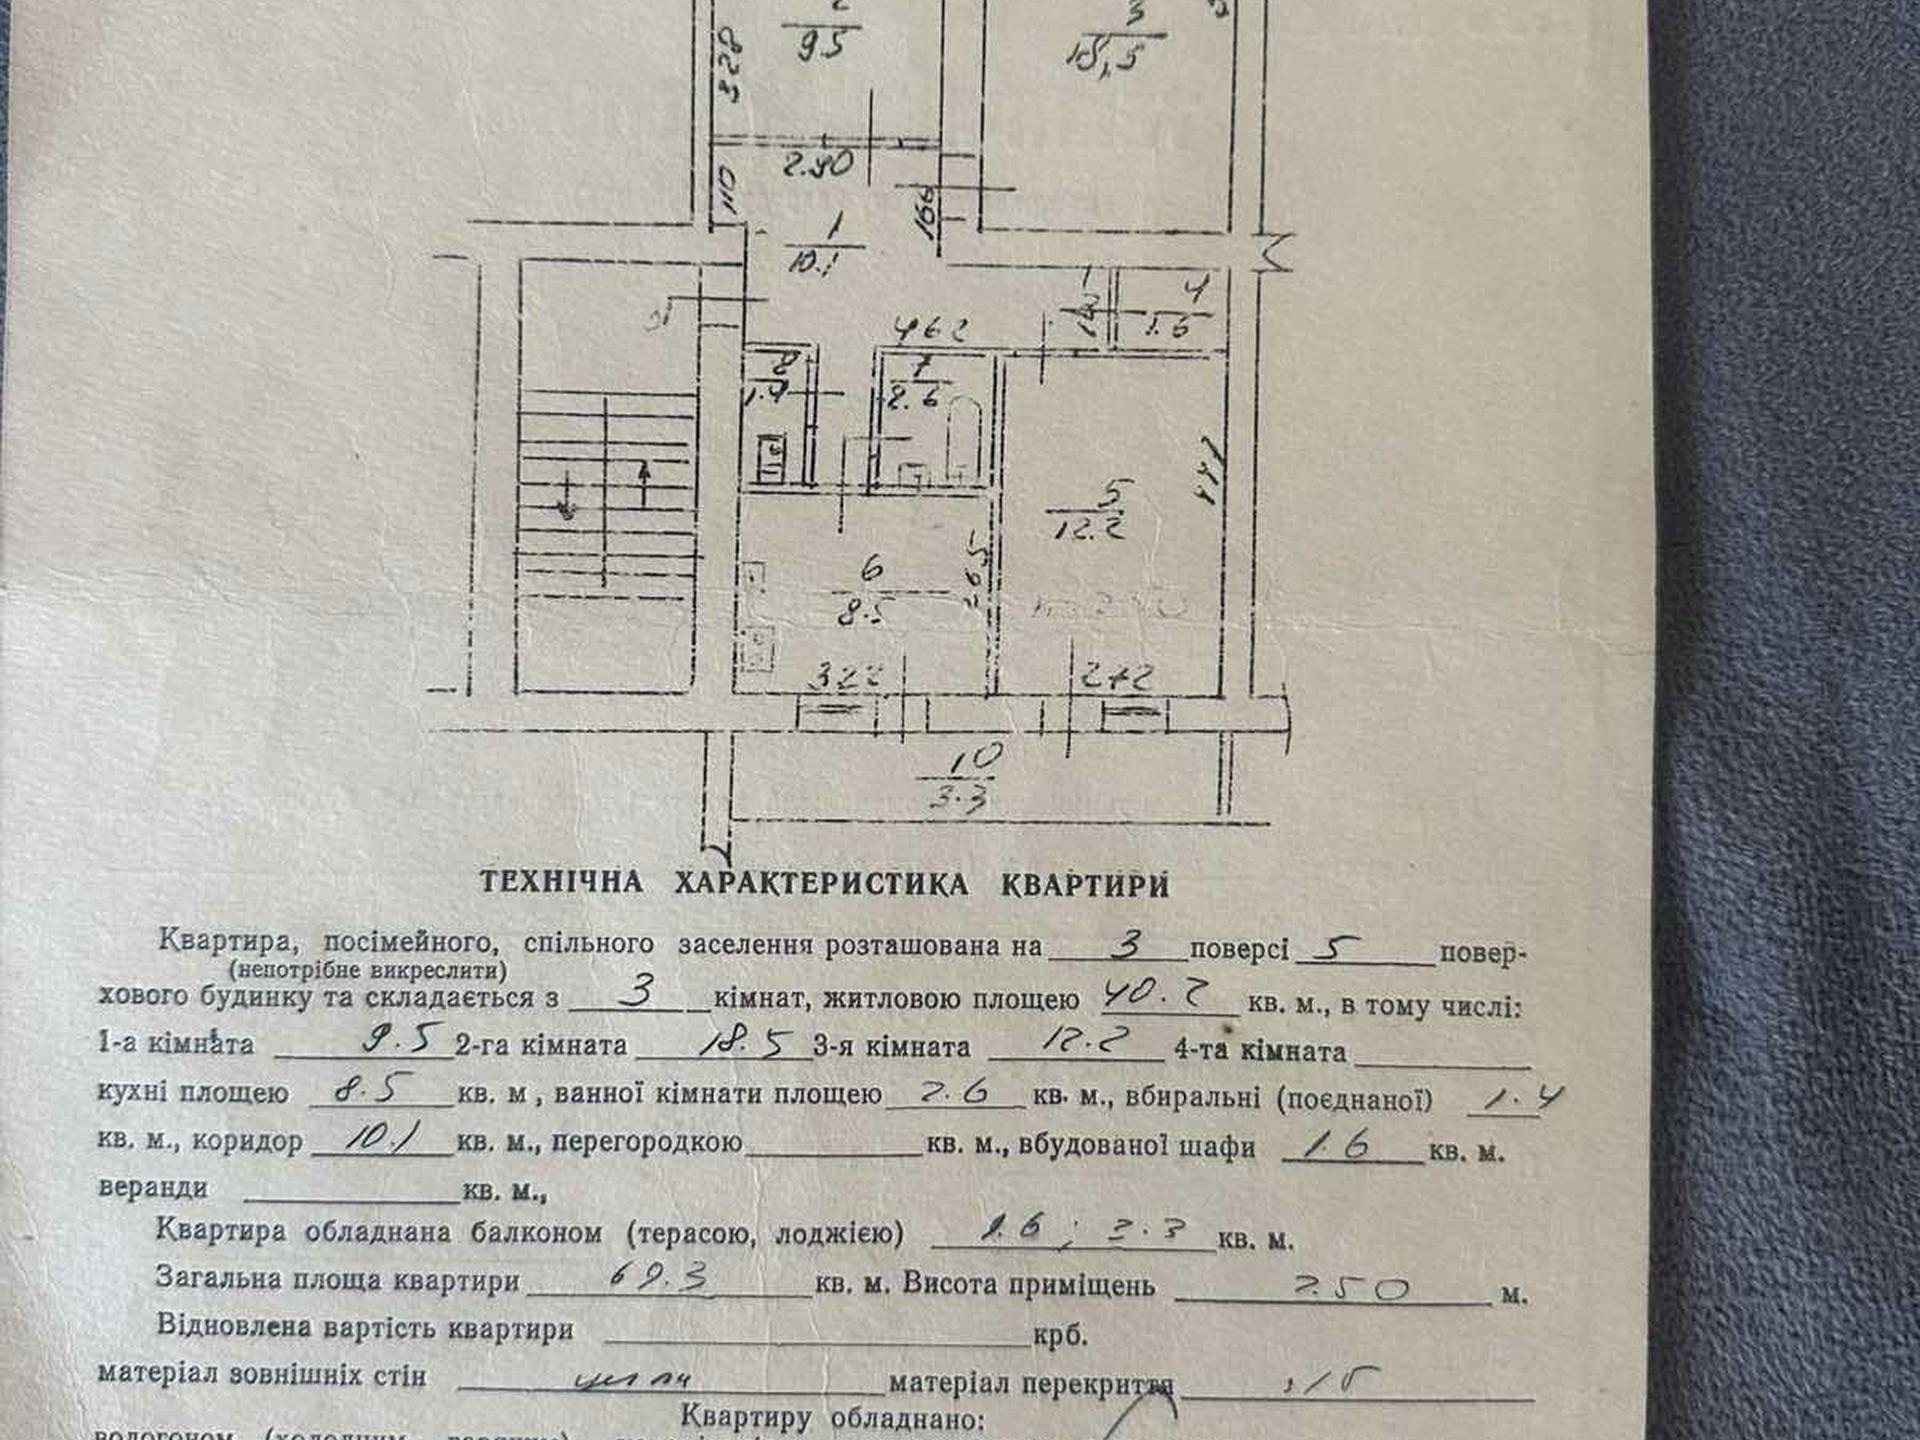 2
9.5
3
18,5
328
2.90
110
166
1
10.1
4
1.6
462
8
1.4
7
2.6
5
12.2
447
6
8.5
265
322
272
10
3.3
ТЕХНІЧНА ХАРАКТЕРИСТИКА КВАРТИРИ
Квартира, посімейного, спільного заселення розташована на 3 поверсі 5 повер-
(непотрібне викреслити)
хового будинку та складається з 3 кімнат, житловою площею 40.2 кв. м., в тому числі:
1-а кімната 9.5 2-га кімната 18.5 3-я кімната 12.2 4-та кімната
кухні площею 8.5 кв. м , ванної кімнати площею 2.6 кв. м., вбиральні (поєднаної) 1.4
кв. м., коридор 10.1 кв. м., перегородкою кв. м., вбудованої шафи 1.6 кв. м.
веранди кв. м.,
Квартира обладнана балконом (терасою, лоджією) 1.6 ; 3.3 кв. м.
Загальна площа квартири 69.3 кв. м. Висота приміщень 2.50 м.
Відновлена вартість квартири крб.
матеріал зовнішніх стін матеріал перекриття з/б
Квартиру обладнано: